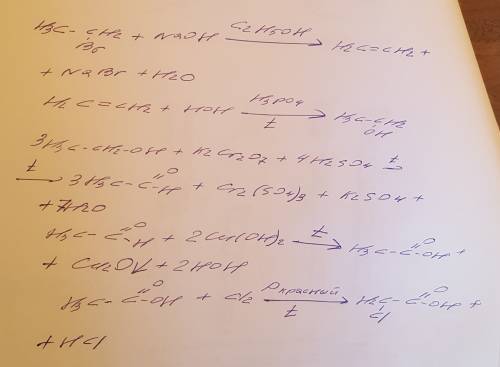 H3C-CH2 + NaOH C2H5OH → H2C=CH2 +
Br
+ NaBr + H2O
H2C=CH2 + HOH H3PO4 t → H3C-CH2
OH
3H3C-CH2-OH + K2Cr2O7 + 4H2SO4 t →
t → 3H3C-C=O -H + Cr2(SO4)3 + K2SO4 +
+ 7H2O
H3C-C=O -H + 2Cu(OH)2 t → H3C-C=O -OH +
+ Cu2O↓ + 2HOH
H3C-C=O -OH + Cl2 Pкрасный t → H2C-C=O -OH +
Cl
+ HCl